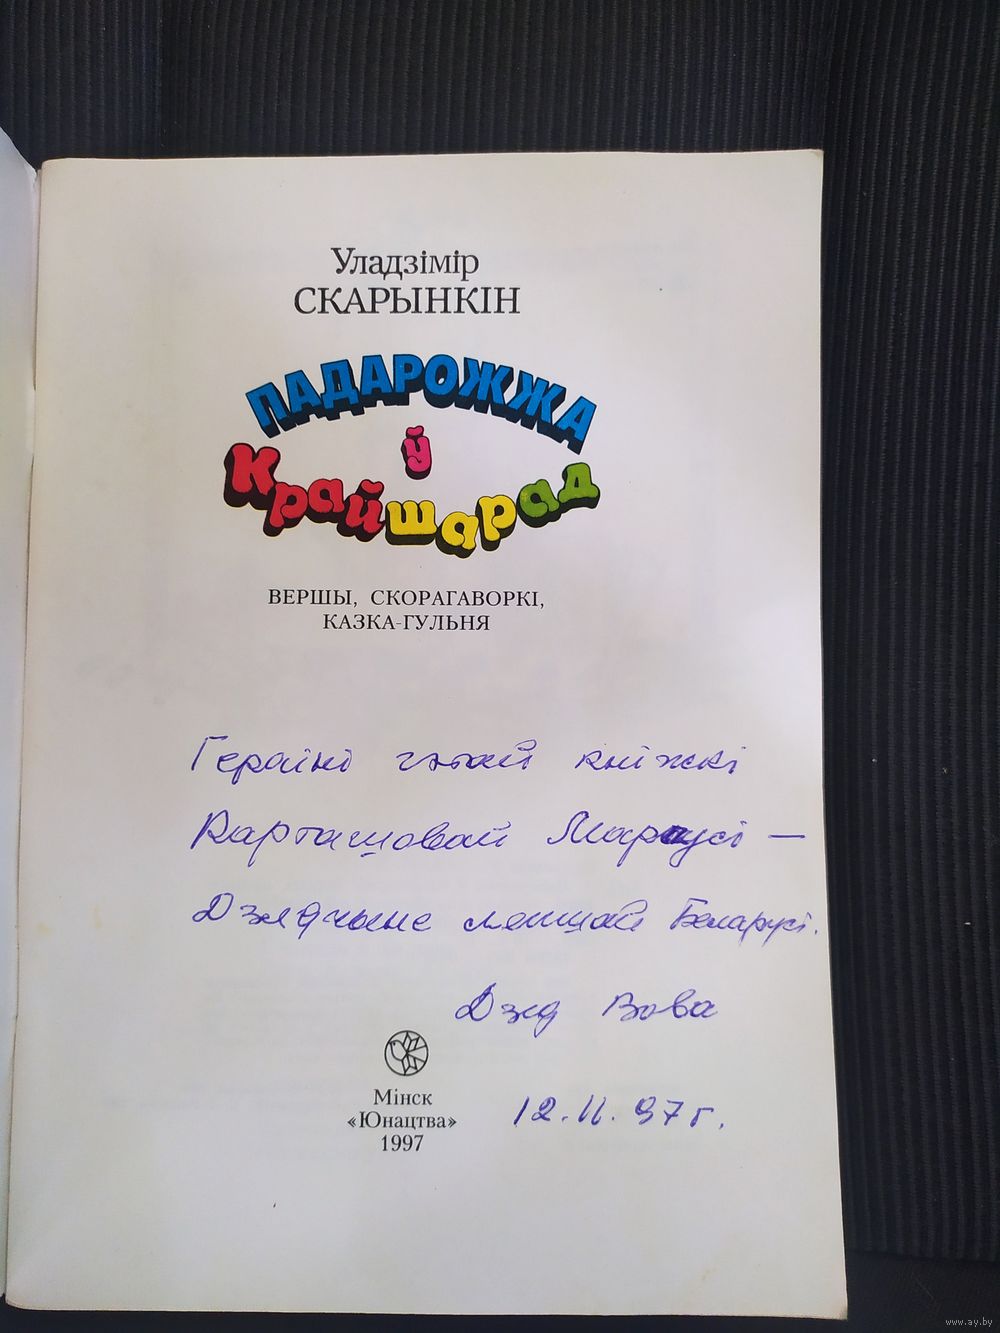 Уладзімір
СКАРЫНКІН
ПАДАРОЖЖА
ў
Крайшарад
ВЕРШЫ, СКОРАГАВОРКІ,
КАЗКА-ГУЛЬНЯ
Гераіні гэтай кніжкі
Карташовай Марусі —
Дзяўчыне лепшай Беларусі.
Дзед Вова
12.11.97г.
Мінск
«Юнацтва»
1997
www.ay.by